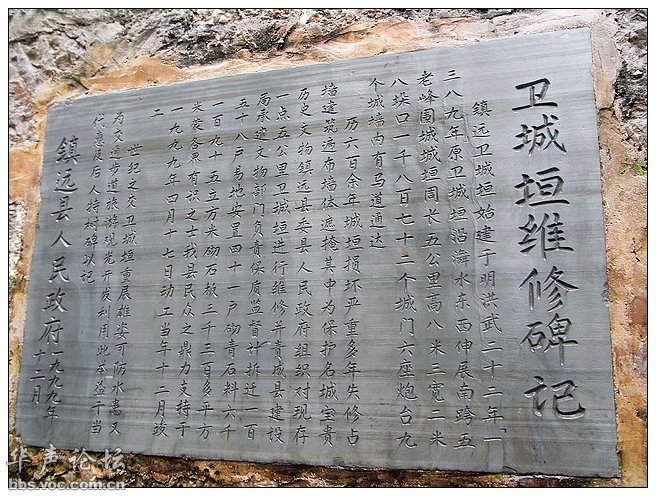 卫城垣维修碑记
镇远卫城垣始建于明洪武二十二年「一
三八九年原卫城垣沿㵲水东西伸展南跨五
老峰围城城垣周长五公里高八米三宽二米
八垛口一千八百七十二个城门六座炮台九
个城墙内有马道通达
历六百余年城垣损坏严重多年失修占
墙建筑遍布墙体遮掩其中为保护名城宝贵
历史文物镇远县委县人民政府组织对现存
一点五公里卫城垣进行维修并责成县建设
局承建文物部门负责保质监督计拆迁一百
五十八户易地安置四十一户砌青石料六千
一百九十五立方米砌石板三千三百多平方
米蒙各界有识之士我县民众之鼎力支持于
一九九九年四月十七日动工当年十二月竣
工
世纪之交卫城垣重展雄姿可防水患又
为交进步道旅游观光开发利用此本益于当
代惠及后人特树碑以记
镇远县人民政府
一九九九年
十二月
华声论坛
bbs.voc.com.cn